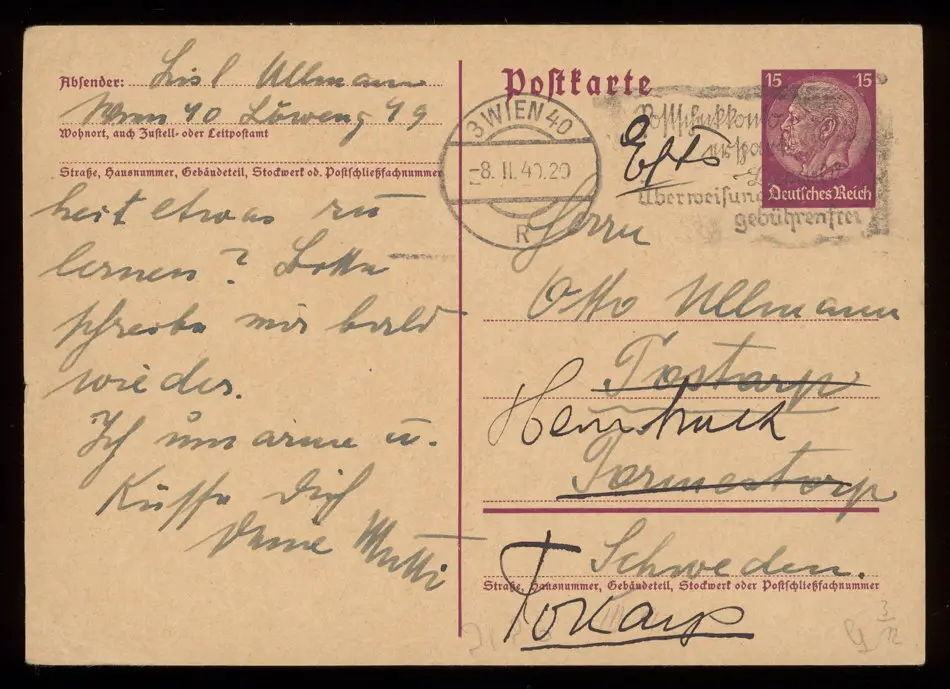 Absender: Lisl Ullmann
Wien 40 Löweng 49
Wohnort, auch Zustell- oder Leitpostamt
Straße, Hausnummer, Gebäudeteil, Stockwerk od. Postschließfachnummer
heit etwas zu
lernen? Bitte
schreibe mir bald
wieder.
Ich umarme u.
Küsse Dich
Deine Mutti
Postkarte
3 WIEN 40
-8. II. 40.20
R
Postscheckkonto
erspart
Überweisung
gebührenfrei
15 15
Deutsches Reich
Herrn
Otto Ullmann
Tostarp
Schweden.
Straße, Hausnummer, Gebäudeteil, Stockwerk oder Postschließfachnummer
3
12